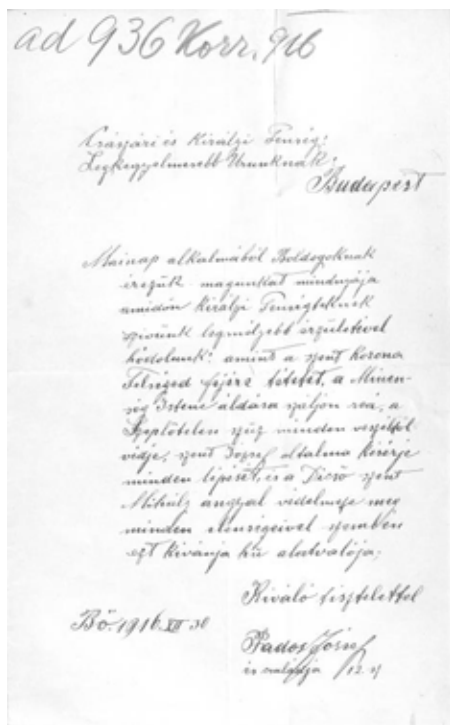 ad 936 Korr. 916
Császári és Királyi Fenség!
Legkegyelmesebb Urunknak!
Budapest
Mainap alkalmából Boldogoknak
érezük magunkat mindnyája
amidőn királyi Fenségteknek
szivünk legmélyebb érzületivel
hódolunk! amint a szent korona
Felséged fejére tétetet, a Minen-
ség Istene áldása száljon reá, a
Szeplőtelen szüz minden veszélytől
védje, szent József oltalma kisérje
minden lipését, és a Dicső szent
Mihály angyal védelmezze meg
minden elenségeivel szemben
ezt kivánja hű alatvalója;
Kiváló tisztelettel
Bő. 1916 XII 30
József
és családja